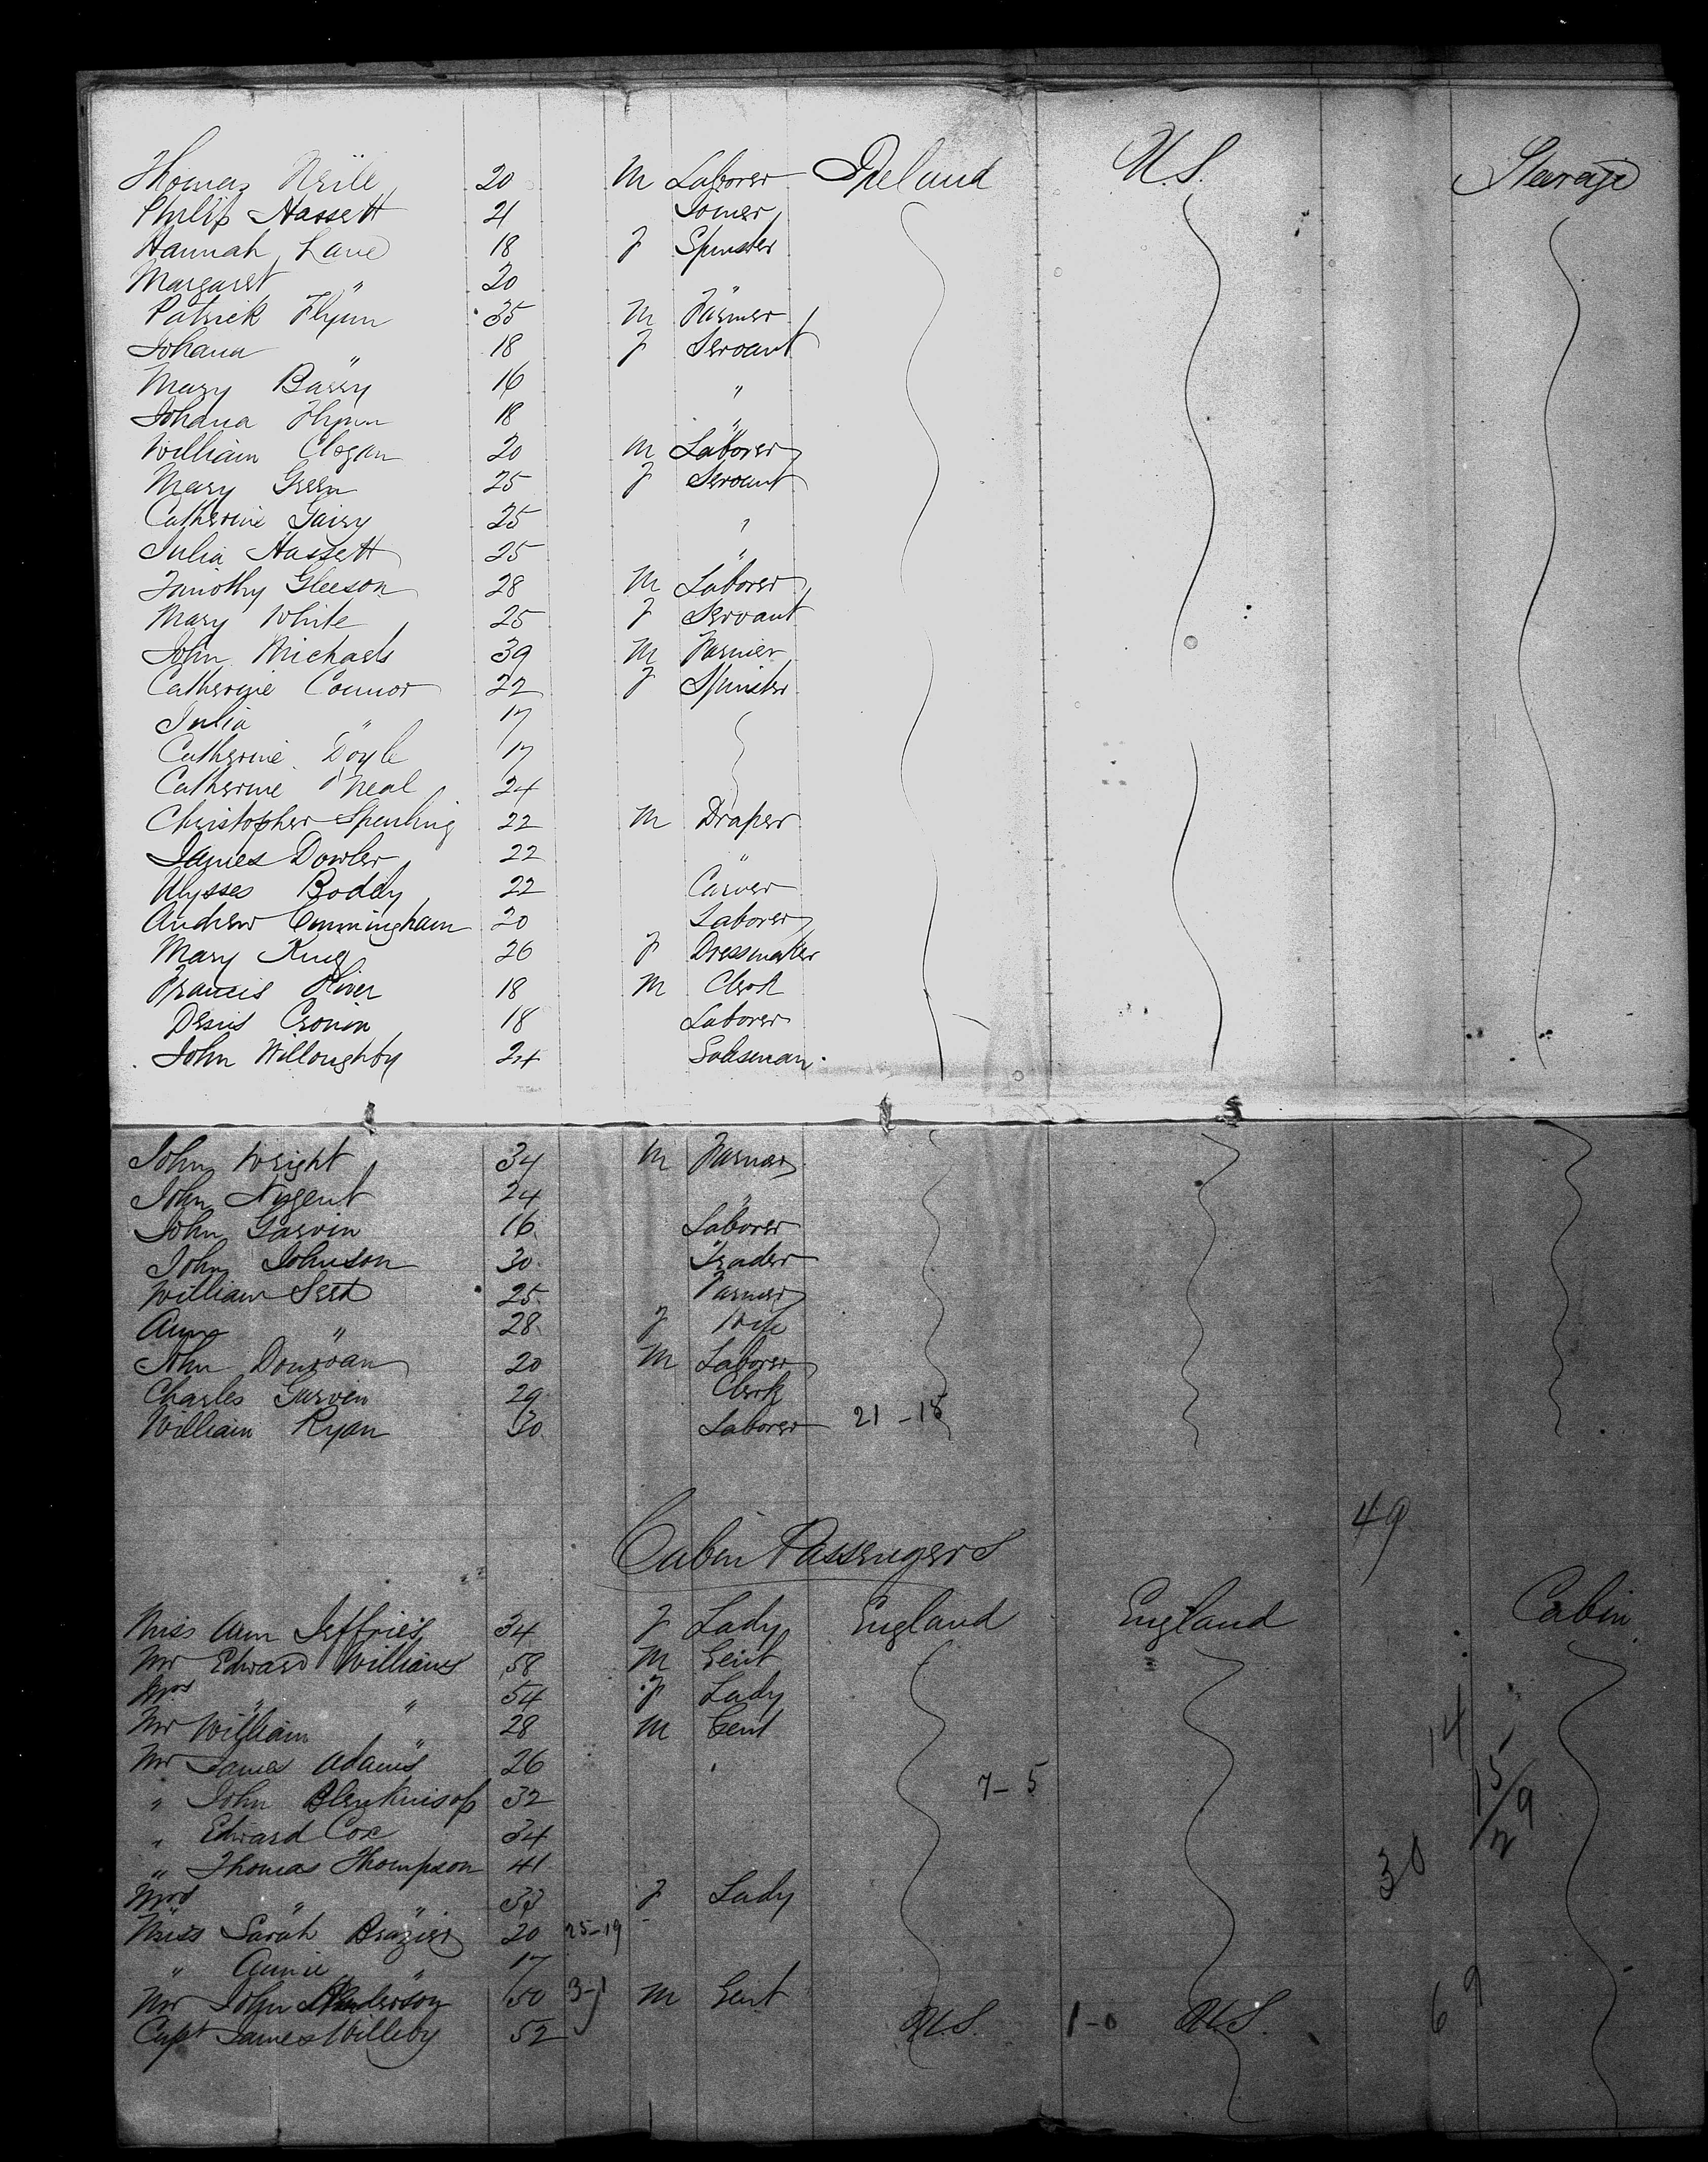 Thomas Neile 20 M Laborer Ireland U.S. Steerage
Philip Hassett 21 Joiner
Hannah Lane 18 F Spinster
Margaret " 20 "
Patrick Flynn 35 M Farmer
Johana " 18 F Servant
Mary Barry 16 "
Johana Flynn 18 "
William Clogan 20 M Laborer
Mary Green 25 F Servant
Catherine Gairy 25 "
Julia Hassett 25 "
Timothy Gleeson 28 M Laborer
Mary White 25 F Servant
John Michaels 39 M Farmer
Catherine Connor 22 F Spinster
Julia " 17
Catherine Doyle 17
Catherine O'Neal 24
Christopher Spenling 22 M Draper
James Dowler 22 "
Ulysses Boddy 22 Carver
Andrew Cunningham 20 Laborer
Mary King 26 F Dressmaker
Francis Oliver 18 M Clerk
Denis Cronin 18 Laborer
John Willoughby 24 Salesman
John Wright 34 M Farmer
John Nugent 24 "
John Garvin 16 Laborer
John Johnson 30 Trader
William Sert 25 Farmer
Anne " 28 F Wife
John Donovan 20 M Laborer
Charles Garvin 29 Clerk
William Ryan 30 Laborer 21-18
49
Cabin Passengers
Miss Ann Jeffries 34 F Lady England England Cabin
Mr Edward Williams 58 M Gent
Mrs " " 54 F Lady
Mr William " 28 M Gent
Mr James Adams 26 "
" John Blenkinsop 32 7-5
" Edward Cox 34
" Thomas Thompson 41 30
Mrs " " 33 F Lady
Miss Sarah Brazier 20 25-19
" Annie " 17
Mr John Anderson 50 3-1 M Gent
Capt James Willeby 52 U.S. 1-0 U.S. 6 9